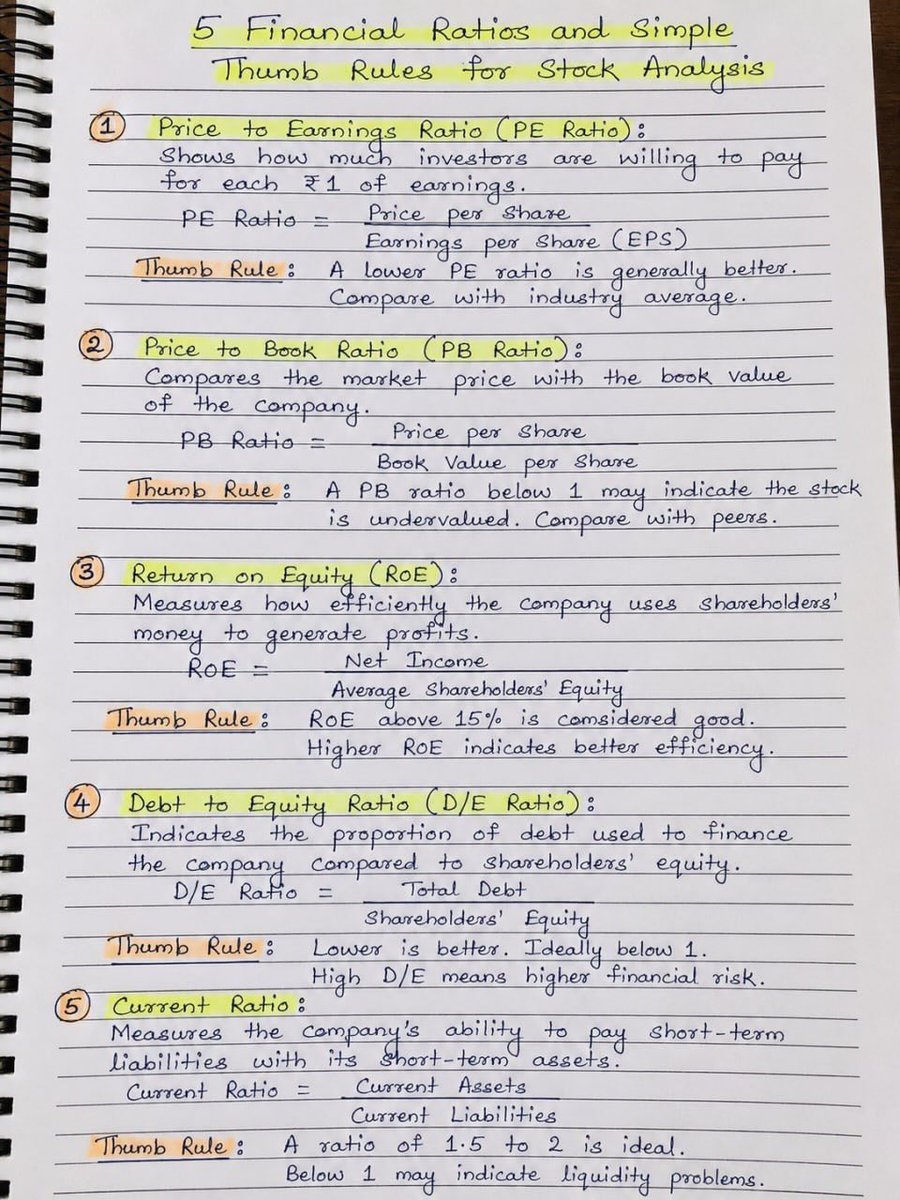 5 Financial Ratios and Simple
Thumb Rules for Stock Analysis
1 Price to Earnings Ratio (PE Ratio):
Shows how much investors are willing to pay
for each ₹1 of earnings.
PE Ratio = Price per Share
Earnings per Share (EPS)
Thumb Rule: A lower PE ratio is generally better.
Compare with industry average.
2 Price to Book Ratio (PB Ratio):
Compares the market price with the book value
of the company.
PB Ratio = Price per Share
Book Value per Share
Thumb Rule: A PB ratio below 1 may indicate the stock
is undervalued. Compare with peers.
3 Return on Equity (ROE):
Measures how efficiently the company uses shareholders'
money to generate profits.
ROE = Net Income
Average Shareholders' Equity
Thumb Rule: ROE above 15% is comsidered good.
Higher ROE indicates better efficiency.
4 Debt to Equity Ratio (D/E Ratio):
Indicates the proportion of debt used to finance
the company compared to shareholders' equity.
D/E Ratio = Total Debt
Shareholders' Equity
Thumb Rule: Lower is better. Ideally below 1.
High D/E means higher financial risk.
5 Current Ratio:
Measures the company's ability to pay short-term
liabilities with its short-term assets.
Current Ratio = Current Assets
Current Liabilities
Thumb Rule: A ratio of 1.5 to 2 is ideal.
Below 1 may indicate liquidity problems.